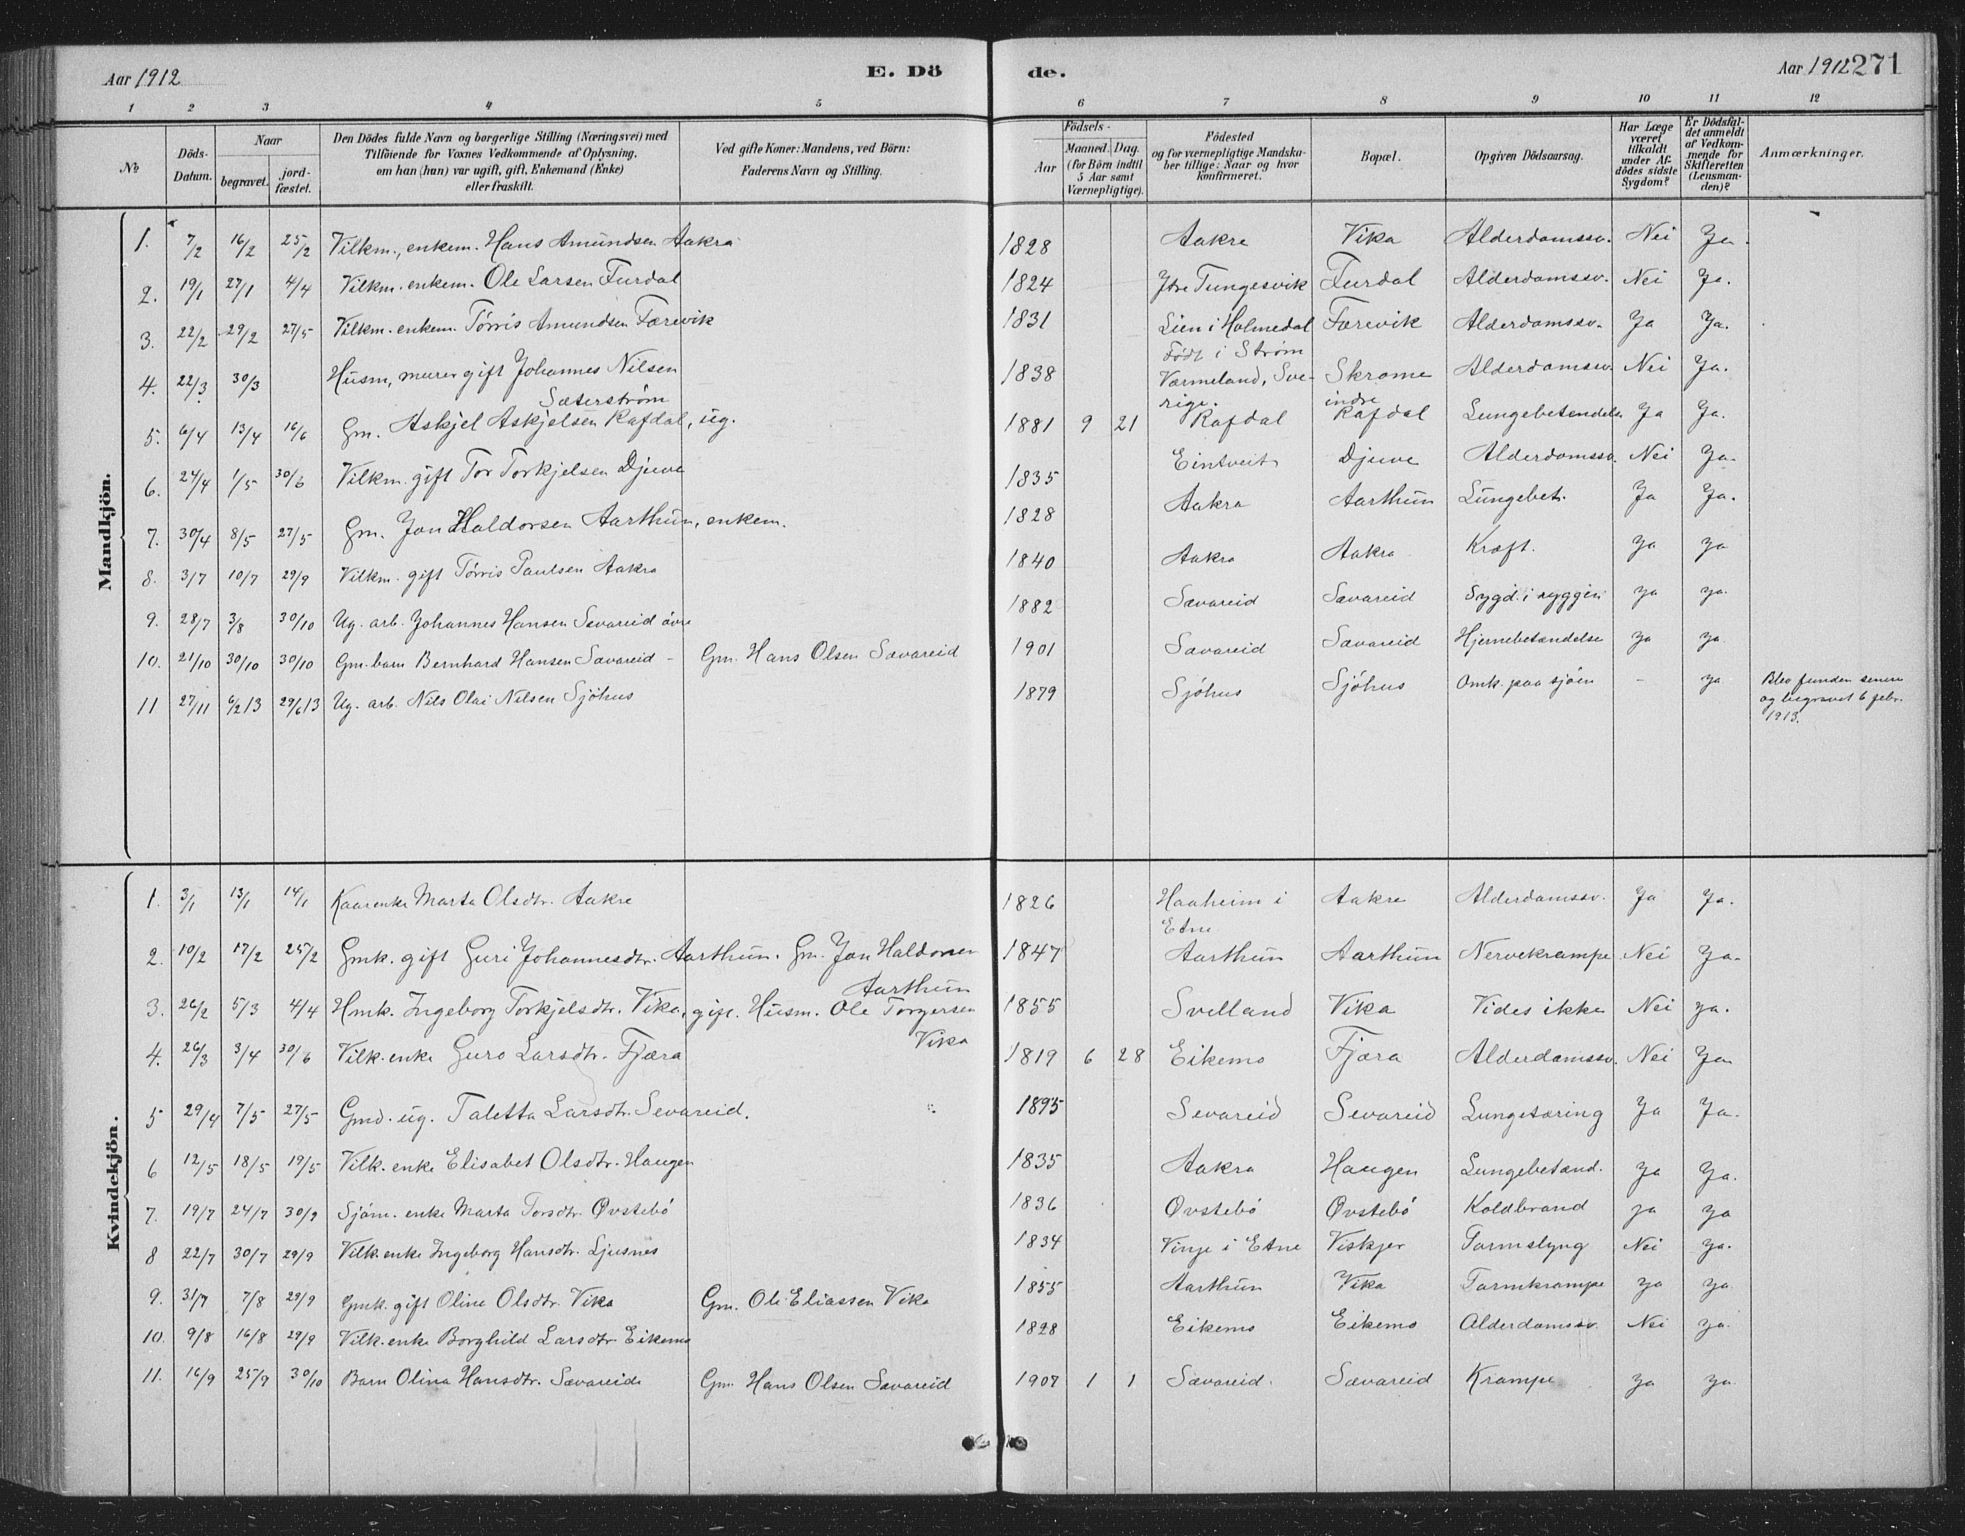 Aar 1912 E. Dö de. Aar 1912 271
1 2 3 4 5 6 7 8 9 10 11 12
No Döds-Datum. Naar begravet. jord-fæstet. Den Dödes fulde Navn og borgerlige Stilling (Næringsvei) med Tilföiende for Voxnes Vedkommende af Oplysning, om han (hun) var ugift, gift, Enkemand (Enke) eller fraskilt. Ved gifte Koner: Mandens, ved Börn: Faderens Navn og Stilling. Födsels- Aar Maaned. Dag. (for Börn indtil 5 Aar samt Værnepligtige). Födested og for værnepligtige Mandskaber tillige: Naar og hvor konfirmeret. Bopæl. Opgiven Dödsaarsag. Har Læge været tilkaldt under Afdödes sidste Sygdom? Er Dödsfaldet anmeldt af Vedkommende for Skifteretten (Lensmanden)? Anmærkninger.
Mandkjön.
1. 7/2 16/2 25/2 Vilkm., enkem. Hans Amundsen Aakra 1828 Aakre Vika Alderdomssv. Nei Ja.
2. 19/1 27/1 4/4 Vilkm. enkem. Ole Larsen Furdal 1824 Ytre Tungesvik Furdal Alderdomssv. Nei Ja.
3. 22/2 29/2 27/5 Vilkm. enkem. Törris Amundsen Færevik 1831 Lien i Holmedal Færevik Alderdomssv. Ja Ja.
4. 22/3 30/3 Husm, murer gift Johannes Nilsen Sæterström 1838 Födt i Ström Værmeland, Sverige. Skrome Alderdomssv. Nei Ja.
5. 6/4 13/4 16/6 Gm. Askjel Askjelsen Rafdal, ug. 1881 9 21 Rafdal indre Rafdal Lungebetendels Ja Ja.
6. 24/4 1/5 30/6 Vilkm. gift Tor Torkjelsen Djuve 1835 Eintveit Djuve Alderdomssv. Nei Ja.
7. 30/4 8/5 27/5 Gm. Jon Haldorsen Aarthun, enkem. 1828 Aakra Aarthun Lungebet. Ja Ja.
8. 3/7 10/7 29/9 Vilkm. gift Törris Paulsen Aakra 1840 Aakra Aakra Kræft. Ja Ja
9. 28/7 3/8 30/10 Ug. arb. Johannes Hansen Sævareid övre 1882 Sævareid Sævareid Sygd. i ryggen Ja Ja.
10. 21/10 30/10 30/10 Gm. barn Bernhard Hansen Sævareid - Gm. Hans Olsen Sævareid 1901 Sævareid Sævareid Hjernebetændelse Ja Ja.
11 27/11 6/2 13 29/6 13 Ug. arb. Nils Olai Nilsen Sjöhus 1879 Sjöhus Sjöhus Omk. paa sjöen - Ja Blev funden senere og begravet 6 febr. 1913.
Kvindekjön.
1. 3/1 13/1 14/1 Kaarenke Marta Olsdtr. Aakre 1826 Haaheim i Etne Aakre Alderdomssv. Ja Ja.
2. 10/2 17/2 25/2 Gmk. gift Guri Johannesdtr. Aarthun. Gm. Jon Haldorsen Aarthun 1847 Aarthun Aarthun Nervekrampe Nei Ja.
3. 26/2 5/3 4/4 Hmk. Ingeborg Torkjelsdtr. Vika, gift. Husm. Ole Torgersen Vika 1855 Svelland Vika Vides ikke Nei Ja.
4. 26/3 3/4 30/6 Vilk. enke Guro Larsdtr. Fjæra 1819 6 28 Eikemo Fjæra Alderdomssv. Nei Ja
5 29/4 7/5 27/5 Gmd. ug. Taletta Larsdtr. Sevareid. 1895 Sevareid Sevareid Lungetæring Ja Ja.
6 12/5 18/5 19/5 Vilk. enke Elisabet Olsdtr. Haugen 1835 Aakra Haugen Lungebetænd. Ja Ja.
7. 19/7 24/7 30/9 Sjöm. enke Marta Torsdtr. Øvstebö 1836 Øvstebö Øvstebö Koldbrand Ja Ja
8 22/7 30/7 29/9 Vilk. enke Ingeborg Hansdtr. Ljusnes 1834 Vinje i Etne Viskjer Tarmslyng Nei Ja.
9. 31/7 7/8 29/9 Gmk. gift Oline Olsdtr. Vika Gm. Ole Eliassen Vika 1855 Aarthun Vika Tarmkrampe Ja Ja.
10. 9/8 16/8 29/9 Vilk. enke Borghild Larsdtr. Eikemo 1828 Eikemo Eikemo Alderdomssv. Nei Ja.
11. 16/9 25/9 30/10 Barn Olina Hansdtr. Sævareide Gm. Hans Olsen Sævareid 1907 1 1 Sævareid. Sævareid Krampe Ja Ja.